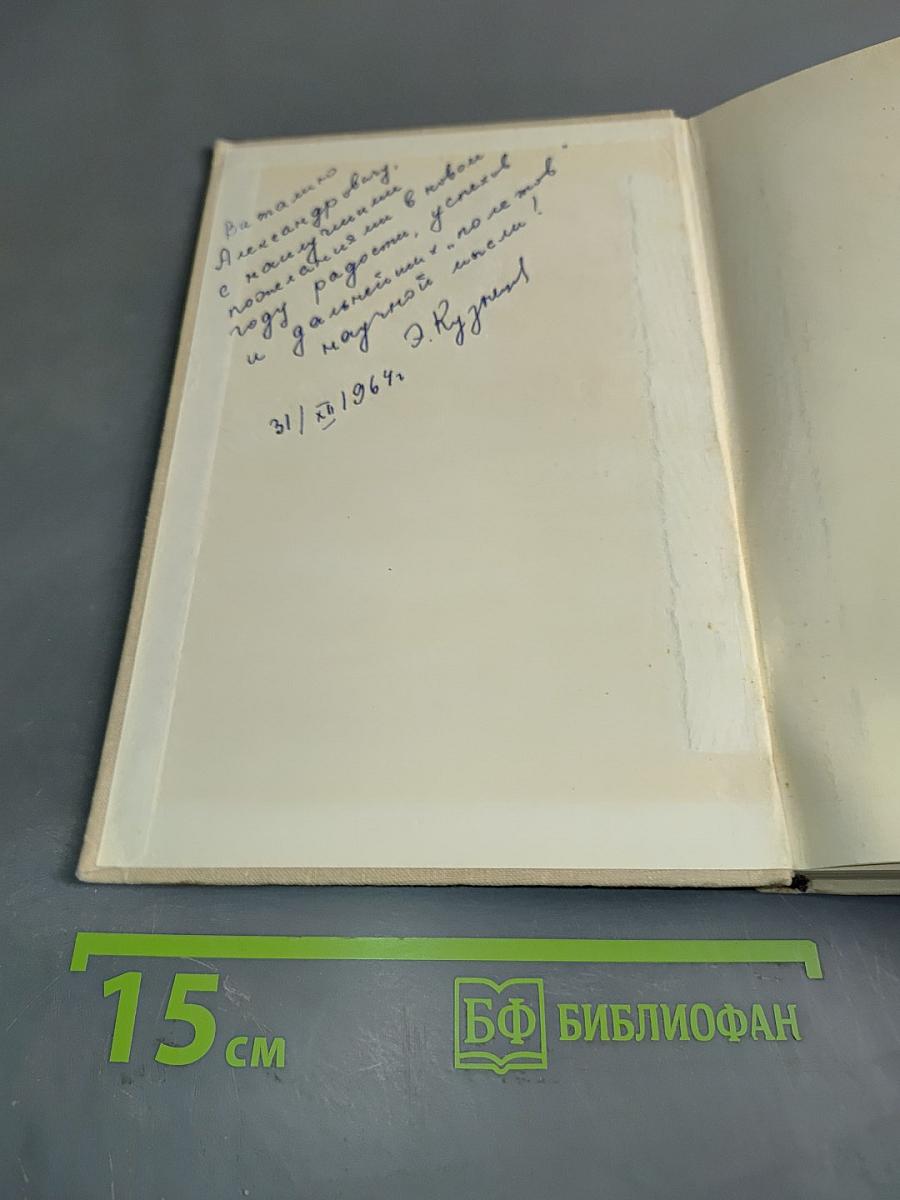 Виталию
Александровичу,
с наилучшими
пожеланиями в новом
году радости, успехов
и дальнейших „полетов"
научной мысли!
Э. Кузнецов
31/XII 1964г
15 см
БФ БИБЛИОФАН